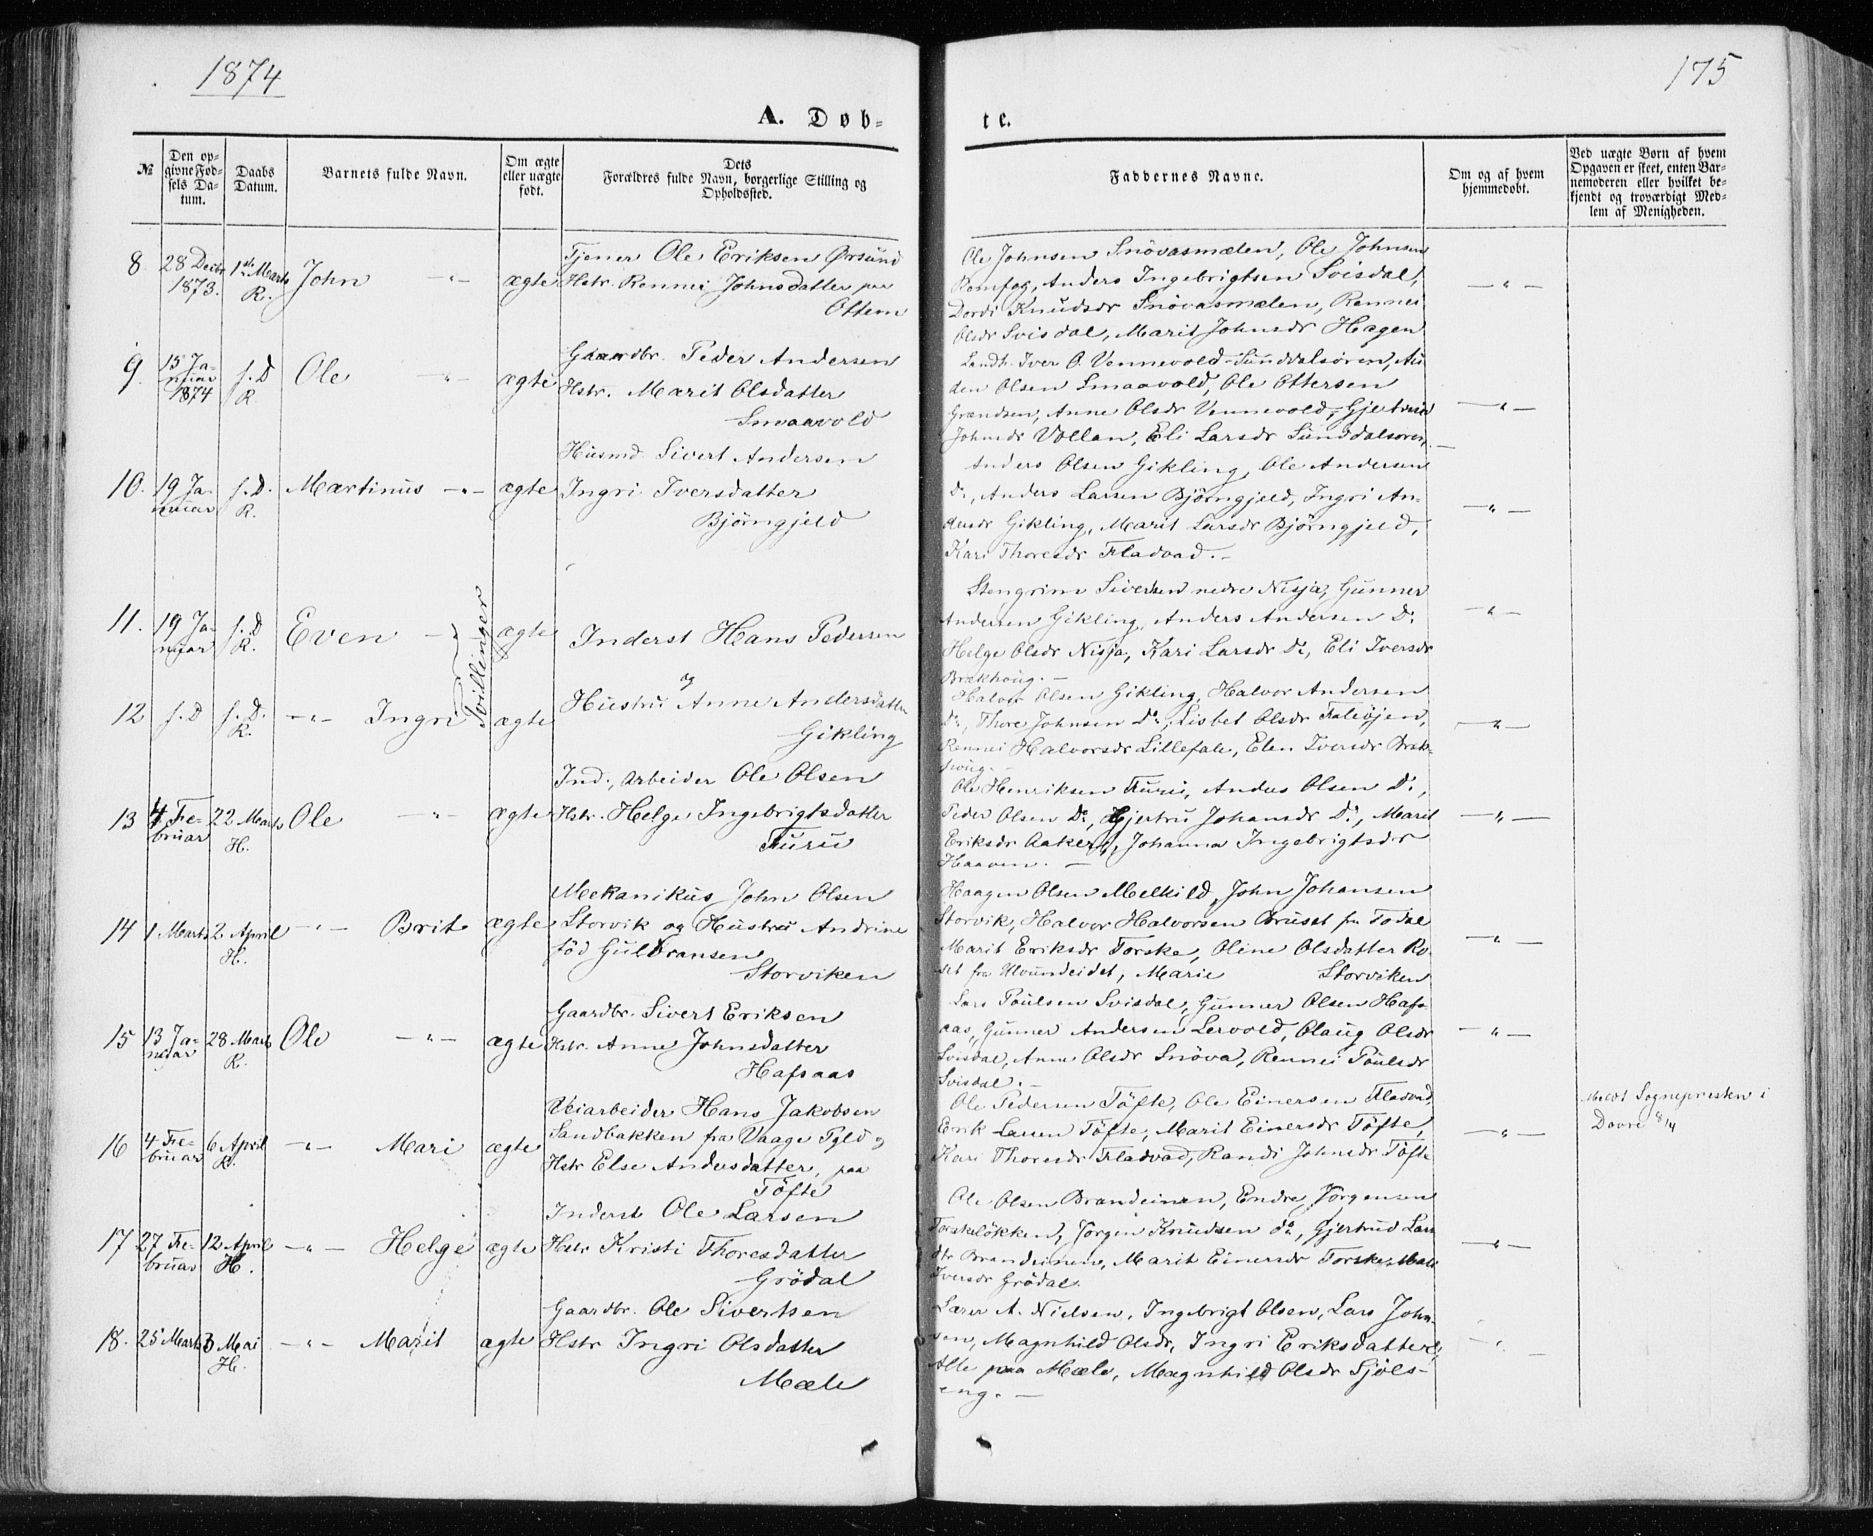 1874
175
A. Døb-
te.
№
Den op-
givne Fød-
sels Da-
tum.
Daabs
Datum.
Barnets fulde Navn.
Om ægte
eller uægte
født.
Dets
Forældres fulde Navn, borgerlige Stilling og
Opholdssted.
Faddernes Navne.
Om og af hvem
hjemmedøbt.
Ved uægte Børn af hvem
Opgaven er skeet, enten Bar-
nemoderen eller hvilket be-
kjendt og troværdigt Med-
lem af Menigheden.
8
28 Decbr
1873.
1ste Marts
R.
John
ægte
Tjener Ole Eriksen Ørsund
Hstr. Rennei Johnsdatter paa
Ottem
Ole Johnsen Snövasmælen, Ole Johnsen
Romfog, Anders Ingebrigtsen Svisdal,
Dordi Knudsdr Snövasmælen, Rennei
Olsdr Svisdal, Marit Johnsdr Hagen
— " —
9.
15 Ja-
nuar
1874
s. D
R
Ole
ægte
Gaardbr. Peder Andersen
Hstr. Marit Olsdatter
Smaavold
Landh. Iver O. Vennevold Sunddalsören, Au-
den Olsen Smaavold, Ole Ottersen
Grændsen, Anne Olsdr Vennevold, Gjertrud
Johnsdr Vollan, Eli Larsdr Sunddalsören.
— " —
10.
19 Ja-
nuar
s. D.
R.
Martinus
ægte
Husmd. Sivert Andersen
Ingri Iversdatter
Björngjeld
Anders Olsen Gikling, Ole Andersen
Do, Anders Larsen Björngjeld, Ingri An-
dersdr Gikling, Marit Larsdr Björngjeld,
Kari Thoresdr Fladvad. —
— " —
11.
19 Ja-
nuar
s. D
R.
Even
Tvillinger
ægte
Inderst Hans Pedersen
Stengrim Sivertsen nedre Nisja, Gunner
Andersen Gikling, Anders Andersen Do
Helge Olsdr Nisja, Kari Larsdr Do, Eli Iversdr
Brækhoug. —
— " —
12
s. D
s. D.
R.
— " — Ingri
ægte
og
Hustru Anne Andersdatter
Gikling
Halvor Olsen Gikling, Halvor Andersen
Do, Thore Johnsen Do, Lisbet Olsdr Faleöjen,
Rennei Halvorsdr Lillefale, Elen Iversdr Bræk-
houg. —
— " —
13
4 Fe-
bruar
22 Marts
H.
Ole
ægte
Ind., Arbeider Ole Olsen
Hstr. Helge Ingebrigtsdatter
Furu
Ole Henriksen Furu, Anders Olsen Do,
Peder Olsen Do, Gjertru Johansdr Do, Marit
Eriksdr Aaker, Johanna Ingebrigtsdr
Haaven. —
— " —
14
1 Marts
2 April
H.
— " — Brit
ægte
Mekanikus John Olsen
Storvik og Hustru Andrine
föd Gulbransen
Storviken
Haagen Olsen Melkild, John Johansen
Storvik, Halvor Halvorsen Bruset fra Todal
Marit Eriksdr Forske, Oline Olsdatter Ro-
set fra Ulvundeidet, Marie Storviken
— " —
15
13 Ja-
nuar
28 Marts
R.
Ole
ægte
Gaardbr. Sivert Eriksen
Hstr. Anne Johnsdatter
Hafsaas
Lars Poulsen Svisdal, Gunner Olsen Hafs-
aas, Gunner Andersen Lervold, Olaug Olsdr
Svisdal, Anne Olsdr Snöva, Rennei Poulsdr
Svisdal. —
— " —
16
4 Fe-
bruar
6 April
R.
— " — Mari
ægte
Veiarbeider Hans Jakobsen
Sandbakken fra Vaage Pgld og
Hstr Else Andersdatter, paa
Töfte
Ole Pedersen Töfte, Ole Einersen Fladvad,
Erik Larsen Töfte, Marit Einersdr Töfte,
Kari Thoresdr Fladvad, Randi Johnsdr Töfte
— " —
Meldt Sognepresten i
Dovre 8/4
17
27 Fe-
bruar
12 April
H.
— " — Helge
ægte
Inderst Ole Larsen
Hstr Kristi Thoresdatter
Grödal
Ole Olsen Brandeinen, Endre Jörgensen
Forskelökken, Jörgen Knudsen do, Gjertrud Lars
dtr Brandeinen, Marit Einersdr Forske,
Iversdr Grödal.
— " —
18.
25 Marts
3 Mai
H.
— " — Marit
ægte
Gaardbr. Ole Sivertsen
Hstr Ingri Olsdatter
Mæle
Lærer A. Nielsen, Ingebrigt Olsen, Lars John-
sen, Magnhild Olsdr, Ingri Eriksdatter,
Alle paa Mæle, Magnhild Olsdr Sjöls-
eng. —